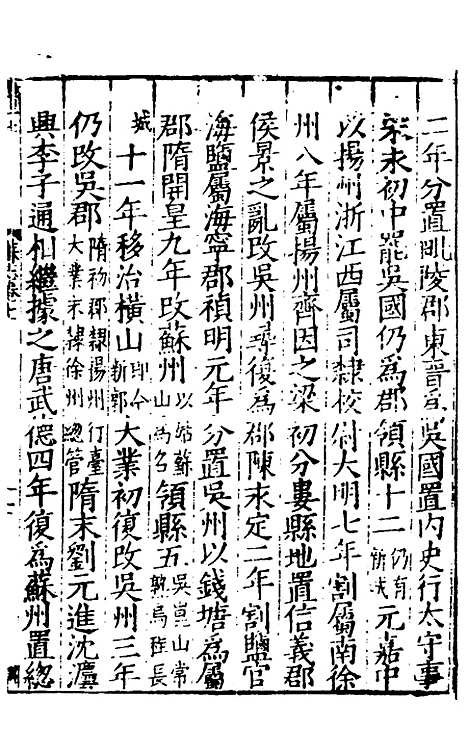 二年分置毗陵郡東晉爲吳國置内史行太守事
宋永初中罷吳國仍爲郡領縣十二仍有新城元嘉中
以揚州浙江西屬司隸校尉大明七年割屬南徐
州八年屬揚州齊因之梁初分婁縣地置信義郡
侯景之亂改吳州尋復爲郡陳永定二年割鹽官
海鹽屬海寧郡禎明元年分置吳州以錢塘爲屬
郡隋開皇九年改蘇州以姑蘇山爲名領縣五吳崑山常熟烏程長
城十一年移治横山即今新郭大業初復改吳州三年
仍改吳郡隋初郡隸揚州行臺大業末隸徐州總管隋末劉元進沈灋
興李子通相繼據之唐武德四年復爲蘇州置總